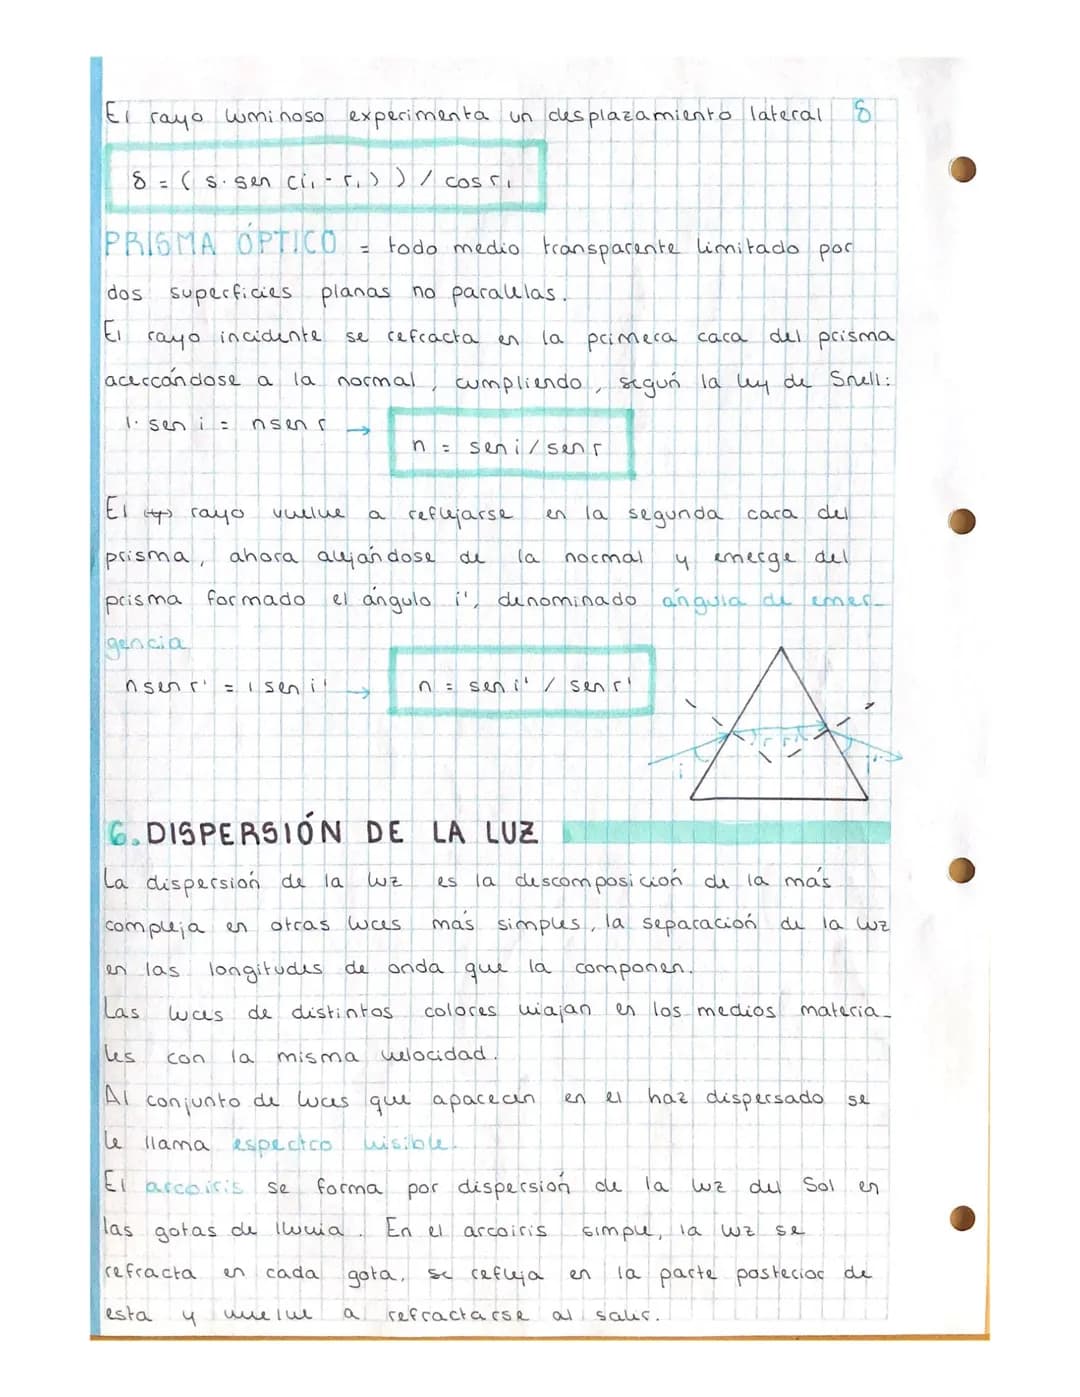 El rayo luminoso experimenta un desplazamiento lateral δ
δ = ( s. sen (i₁ - r₁) ) / cos r₁
PRISMA ÓPTICO = todo medio transparente limitado por
dos superficies planas no paralelas.
El rayo incidente se refracta en la primera cara del prisma
acercándose a la normal, cumpliendo, según la ley de Snell:
1· sen i = n sen r →
n = sen i / sen r
El rayo vuelve a reflejarse en la segunda cara del
prisma, ahora alejándose de la normal y emerge del
prisma formado el ángulo i', denominado ángulo de emer-
gencia
n sen r' = 1 sen i' →
n = sen i' / sen r'
i r r' i'
6. DISPERSIÓN DE LA LUZ
La dispersión de la luz es la descomposición de la más
compleja en otras luces más simples, la separación de la luz
en las longitudes de onda que la componen.
Las luces de distintos colores viajan en los medios materia-
les con la misma velocidad.
Al conjunto de luces que aparecen en el haz dispersado se
le llama espectro visible.
El arcoiris se forma por dispersión de la luz del Sol en
las gotas de lluvia. En el arcoiris simple, la luz se
refracta en cada gota, se refleja en la parte posterior de
esta y vuelve a refractarse al salir.